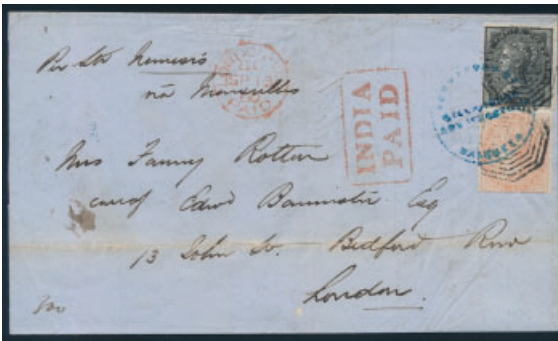 Per Str Nemesis
via Marseilles
PAID
INDIA
PAID
Mrs Fanny Rotton
care of Edwd Bannister Esq
13 John St. Bedford Row
London.